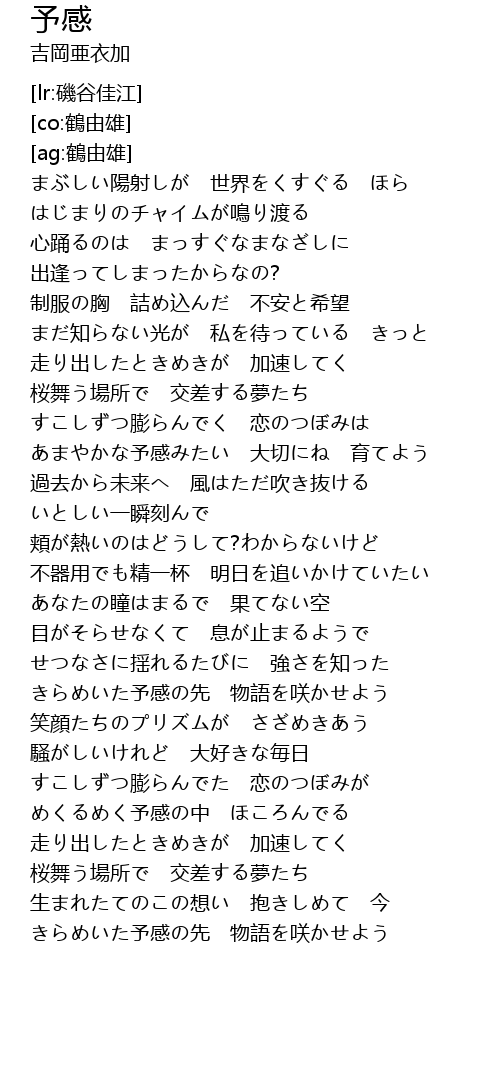 予感
吉岡亜衣加
[lr:磯谷佳江]
[co:鶴由雄]
[ag:鶴由雄]
まぶしい陽射しが　世界をくすぐる　ほら
はじまりのチャイムが鳴り渡る
心踊るのは　まっすぐなまなざしに
出逢ってしまったからなの?
制服の胸　詰め込んだ　不安と希望
まだ知らない光が　私を待っている　きっと
走り出したときめきが　加速してく
桜舞う場所で　交差する夢たち
すこしずつ膨らんでく　恋のつぼみは
あまやかな予感みたい　大切にね　育てよう
過去から未来へ　風はただ吹き抜ける
いとしい一瞬刻んで
頬が熱いのはどうして?わからないけど
不器用でも精一杯　明日を追いかけていたい
あなたの瞳はまるで　果てない空
目がそらせなくて　息が止まるようで
せつなさに揺れるたびに　強さを知った
きらめいた予感の先　物語を咲かせよう
笑顔たちのプリズムが　さざめきあう
騒がしいけれど　大好きな毎日
すこしずつ膨らんでた　恋のつぼみが
めくるめく予感の中　ほころんでる
走り出したときめきが　加速してく
桜舞う場所で　交差する夢たち
生まれたてのこの想い　抱きしめて　今
きらめいた予感の先　物語を咲かせよう